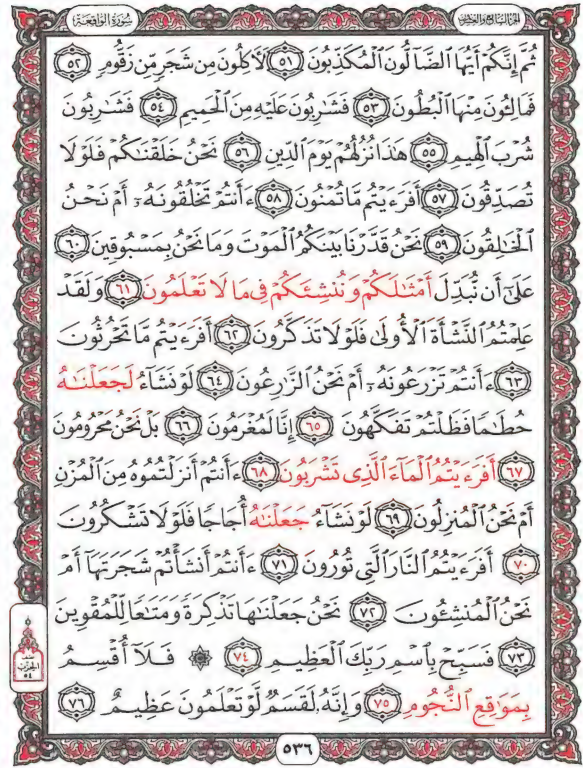 الجزء السابع والعشرون
سورة الواقعة
ثُمَّ إِنَّكُمْ أَيُّهَا ٱلضَّآلُّونَ ٱلْمُكَذِّبُونَ ٥١ لَأٓكِلُونَ مِن شَجَرٍ مِّن زَقُّومٍ ٥٢
فَمَالِـُٔونَ مِنْهَا ٱلْبُطُونَ ٥٣ فَشَٰرِبُونَ عَلَيْهِ مِنَ ٱلْحَمِيمِ ٥٤ فَشَٰرِبُونَ
شُرْبَ ٱلْهِيمِ ٥٥ هَٰذَا نُزُلُهُمْ يَوْمَ ٱلدِّينِ ٥٦ نَحْنُ خَلَقْنَٰكُمْ فَلَوْلَا
تُصَدِّقُونَ ٥٧ أَفَرَءَيْتُم مَّا تُمْنُونَ ٥٨ ءَأَنتُمْ تَخْلُقُونَهُۥٓ أَمْ نَحْنُ
ٱلْخَٰلِقُونَ ٥٩ نَحْنُ قَدَّرْنَا بَيْنَكُمُ ٱلْمَوْتَ وَمَا نَحْنُ بِمَسْبُوقِينَ ٦٠
عَلَىٰٓ أَن نُّبَدِّلَ أَمْثَٰلَكُمْ وَنُنشِئَكُمْ فِى مَا لَا تَعْلَمُونَ ٦١ وَلَقَدْ
عَلِمْتُمُ ٱلنَّشْأَةَ ٱلْأُولَىٰ فَلَوْلَا تَذَكَّرُونَ ٦٢ أَفَرَءَيْتُم مَّا تَحْرُثُونَ
٦٣ ءَأَنتُمْ تَزْرَعُونَهُۥٓ أَمْ نَحْنُ ٱلزَّٰرِعُونَ ٦٤ لَوْ نَشَآءُ لَجَعَلْنَٰهُ
حُطَٰمًا فَظَلْتُمْ تَفَكَّهُونَ ٦٥ إِنَّا لَمُغْرَمُونَ ٦٦ بَلْ نَحْنُ مَحْرُومُونَ
٦٧ أَفَرَءَيْتُمُ ٱلْمَآءَ ٱلَّذِى تَشْرَبُونَ ٦٨ ءَأَنتُمْ أَنزَلْتُمُوهُ مِنَ ٱلْمُزْنِ
أَمْ نَحْنُ ٱلْمُنزِلُونَ ٦٩ لَوْ نَشَآءُ جَعَلْنَٰهُ أُجَاجًا فَلَوْلَا تَشْكُرُونَ
٧٠ أَفَرَءَيْتُمُ ٱلنَّارَ ٱلَّتِى تُورُونَ ٧١ ءَأَنتُمْ أَنشَأْتُمْ شَجَرَتَهَآ أَمْ
نَحْنُ ٱلْمُنشِـُٔونَ ٧٢ نَحْنُ جَعَلْنَٰهَا تَذْكِرَةً وَمَتَٰعًا لِّلْمُقْوِينَ
٧٣ فَسَبِّحْ بِٱسْمِ رَبِّكَ ٱلْعَظِيمِ ٧٤ ۞ فَلَآ أُقْسِمُ
بِمَوَٰقِعِ ٱلنُّجُومِ ٧٥ وَإِنَّهُۥ لَقَسَمٌ لَّوْ تَعْلَمُونَ عَظِيمٌ ٧٦
الحزب
٥٤
٥٣٦